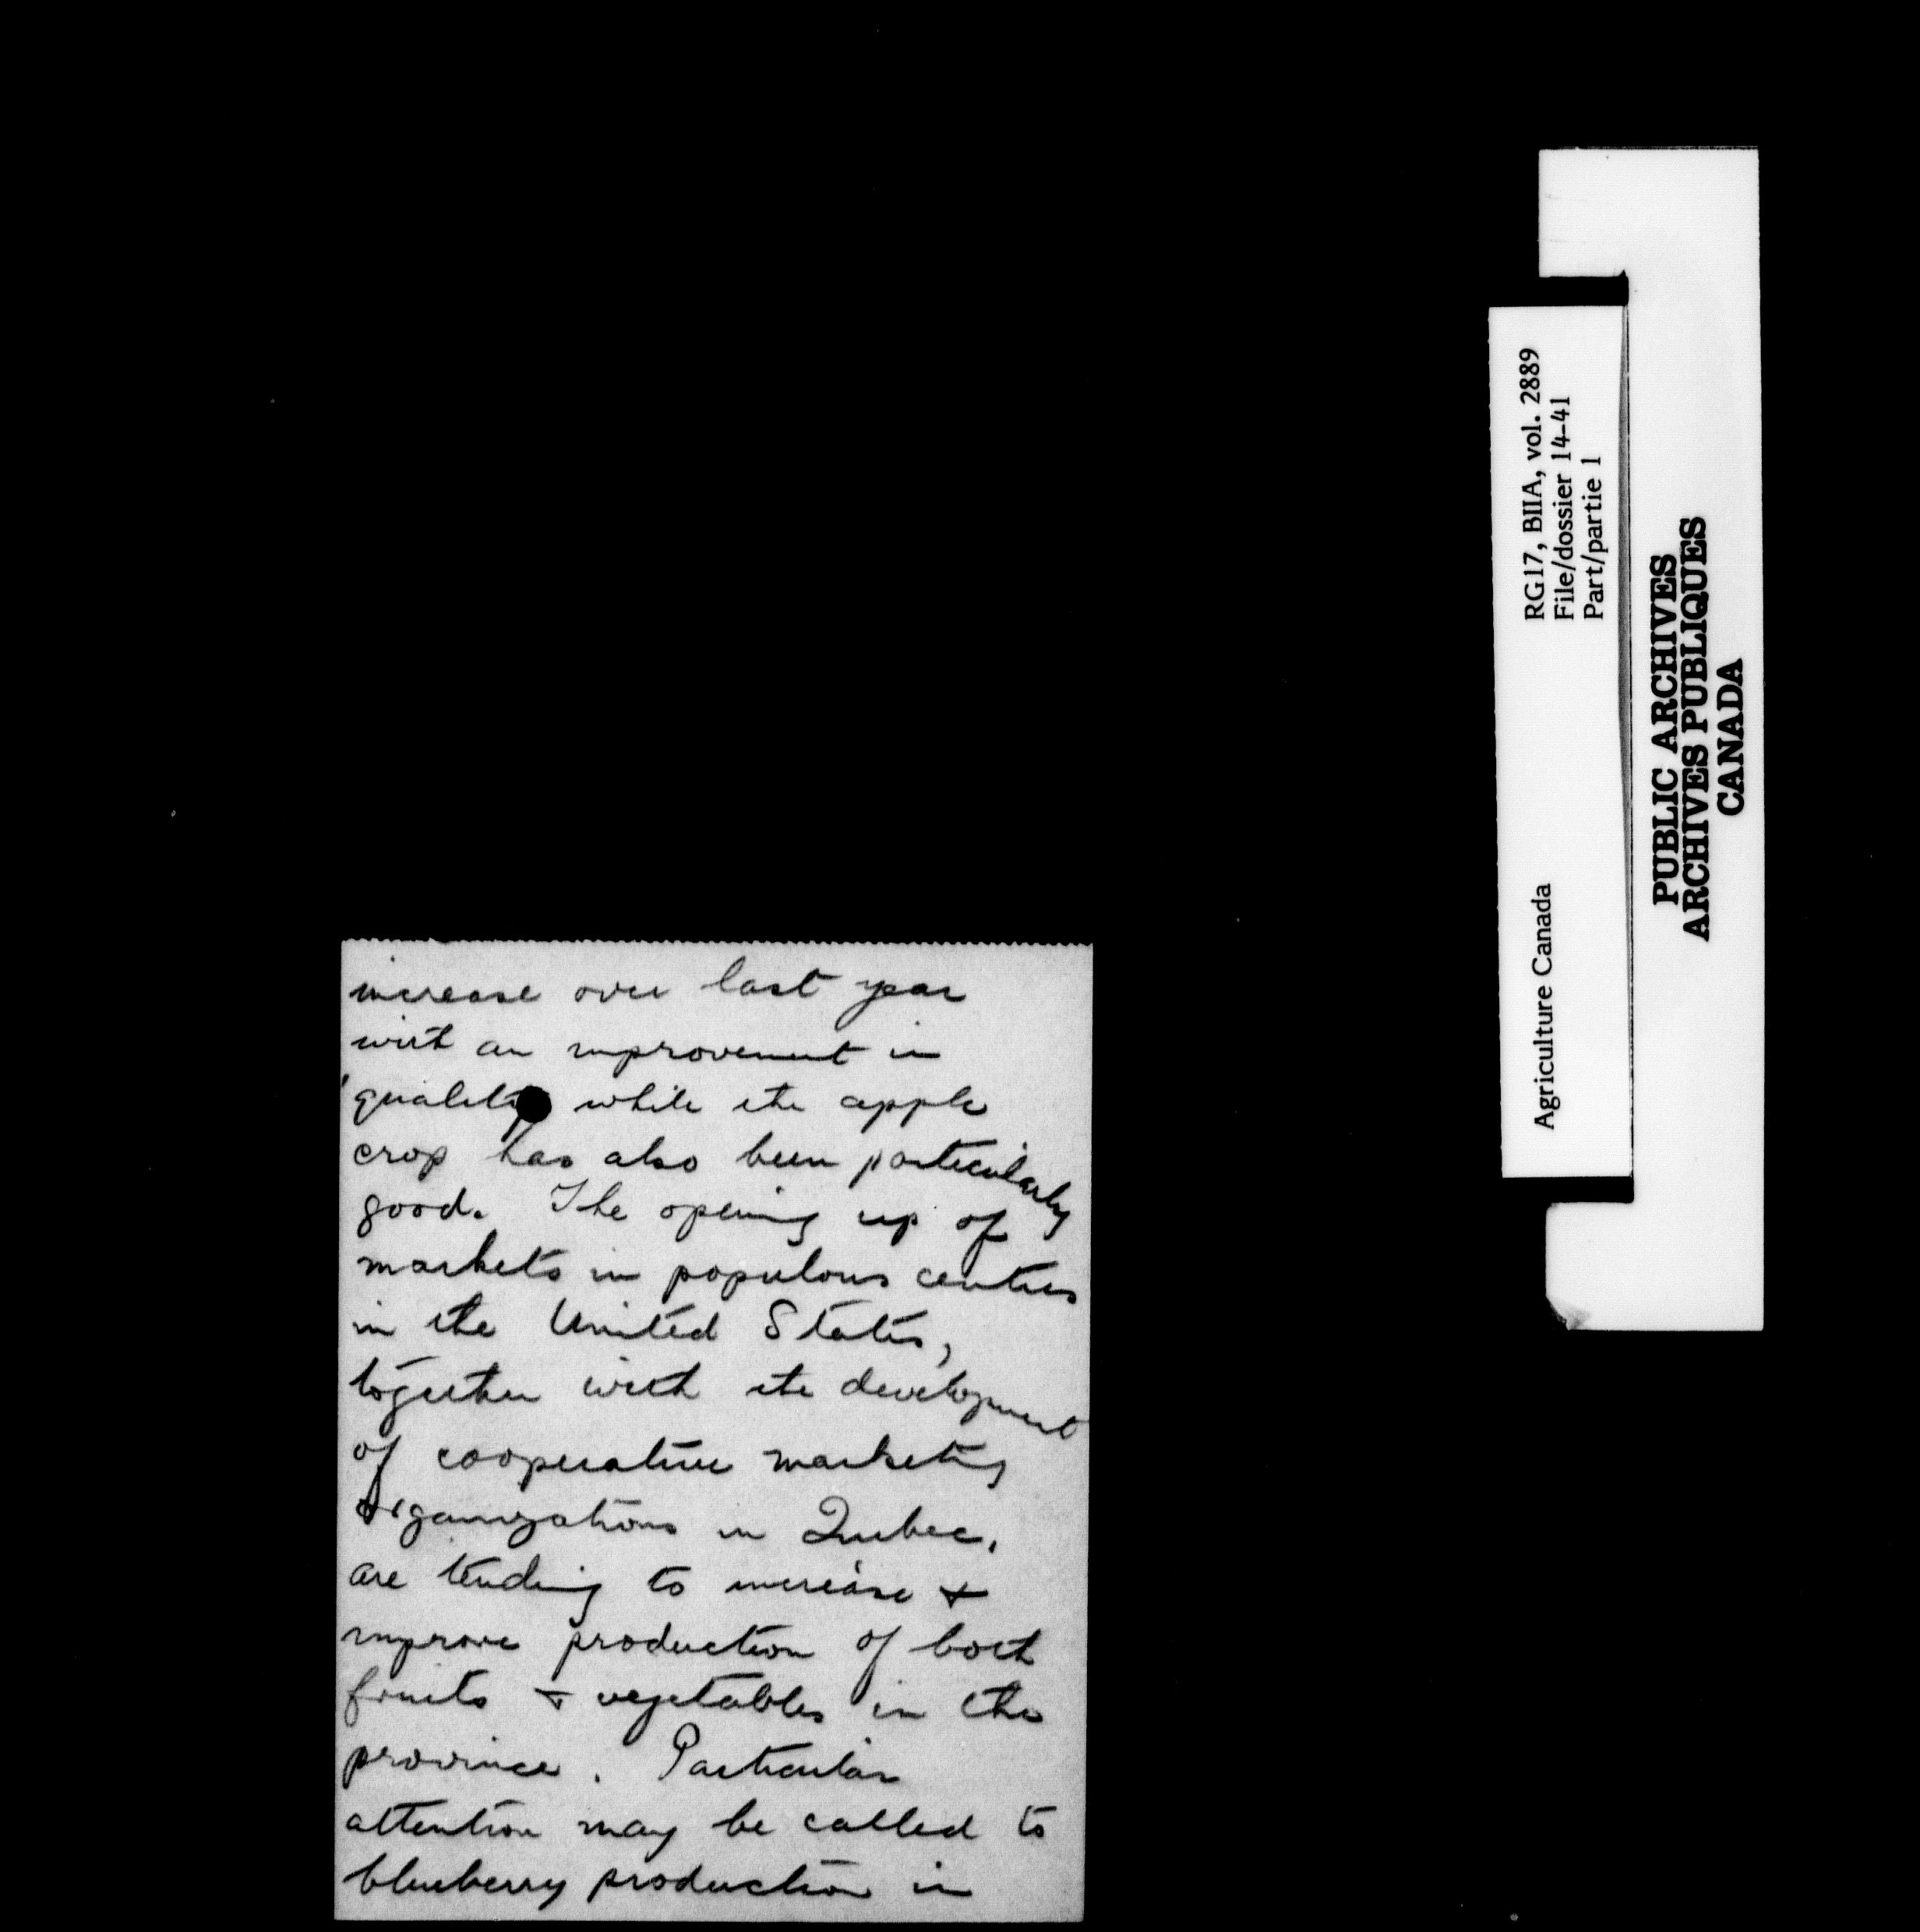 increase over last year
with an improvement in
quality while the apple
crop has also been particularly
good. The opening up of
markets in populous centres
in the United States,
together with the development
of cooperative marketing
organizations in Quebec,
are tending to increase &
improve production of both
fruits & vegetables in the
province. Particular
attention may be called to
blueberry production in
Agriculture Canada
RG17, BIIA, vol. 2889
File/dossier 14-41
Part/partie 1
PUBLIC ARCHIVES
ARCHIVES PUBLIQUES
CANADA